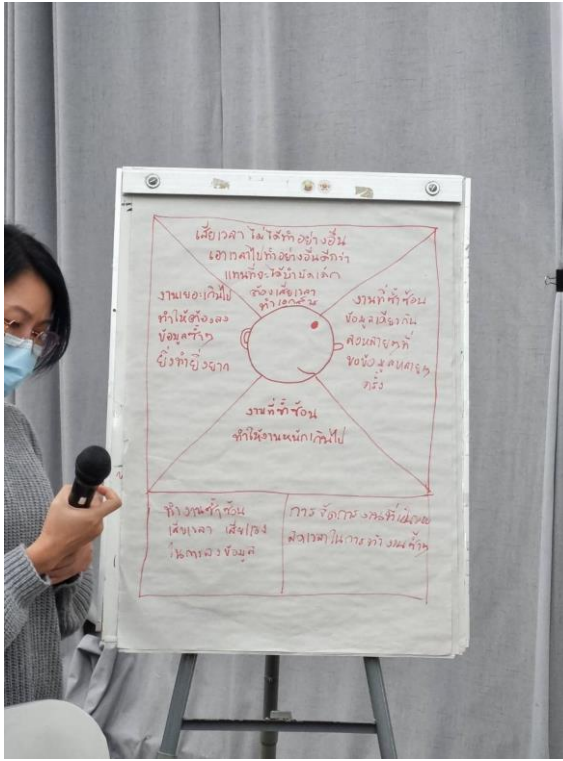 เสียเวลา ไม่ได้ทำอย่างอื่น
เอาเวลาไปทำอย่างอื่นดีกว่า
แทนที่จะได้บำบัดเด็ก
ต้องเสียเวลา
ทำเอกสาร
งานเยอะเกินไป
ทำให้ต้องลง
ข้อมูลซ้ำๆ
ยิ่งทำยิ่งยาก
งานที่ซ้ำซ้อน
ข้อมูลเดียวกัน
ส่งหลายๆที่
ขอข้อมูลหลายๆ
ครั้ง
งานที่ซ้ำซ้อน
ทำให้งานหนักเกินไป
ทำงานซ้ำซ้อน
เสียเวลา เสียแรง
ในการลงข้อมูล
การจัดการงานที่เป็นระบบ
ลดเวลาในการทำงานซ้ำๆ